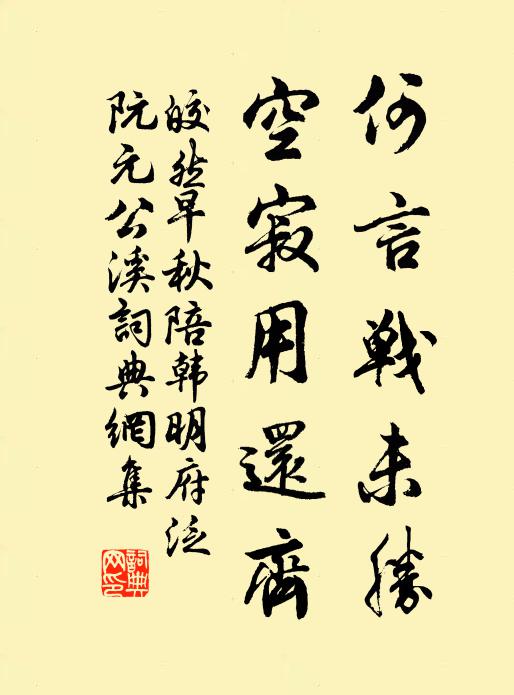 何言戰未勝
空寂用還齊
皎然早秋陪韩明府泛
阮元公溪詞典網集
詞典網印